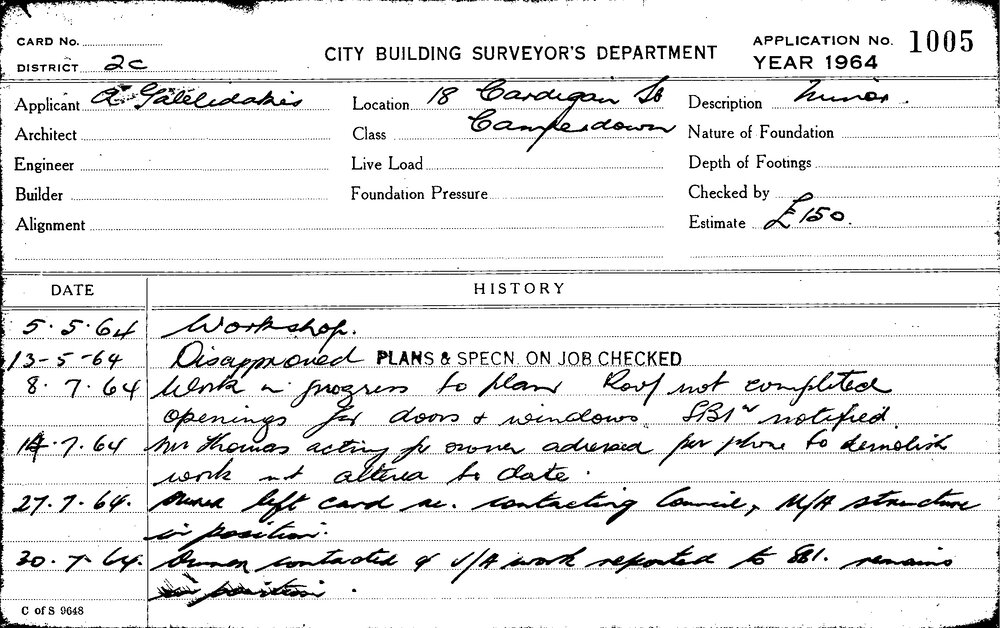 CARD No.
DISTRICT 2c
CITY BUILDING SURVEYOR'S DEPARTMENT
APPLICATION No. 1005
YEAR 1964
Applicant A
Location 18 Cardigan St
Description Minor.
Architect
Class Camperdown
Nature of Foundation
Engineer
Live Load
Depth of Footings
Builder
Foundation Pressure
Checked by
Alignment
Estimate £150.
DATE HISTORY
5.5.64 Workshop.
13-5-64 Disapproved PLANS & SPECN. ON JOB CHECKED
8.7.64 Work in progress to plan Roof not completed
openings for doors & windows notified
14.7.64 Mr Thomas acting for owner advised per phone to demolish
work not altered to date.
27.7.64. Owner left card re. contacting Council, structure
in position.
30.7.64. Owner contacted & work reported to SBI. remains
in position.
C of S 9648